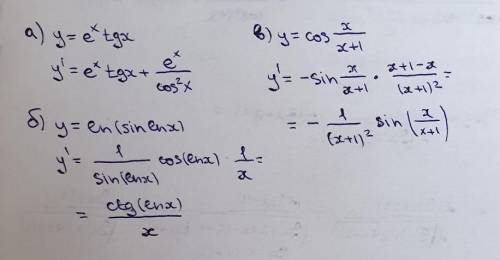 а) y = eˣ tgx
y' = eˣ tgx + eˣ/cos²x
б) y = ln(sin lnx)
y' = 1/sin(lnx) cos(lnx) · 1/x =
= ctg(lnx)/x
в) y = cos x/(x+1)
y' = -sin x/(x+1) · (x+1-x)/(x+1)² =
= - 1/(x+1)² sin(x/(x+1))